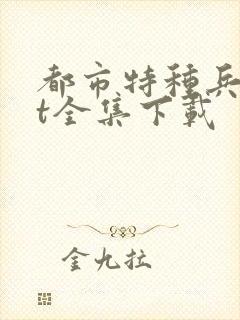 都市特種兵
t全集下載
金九拉